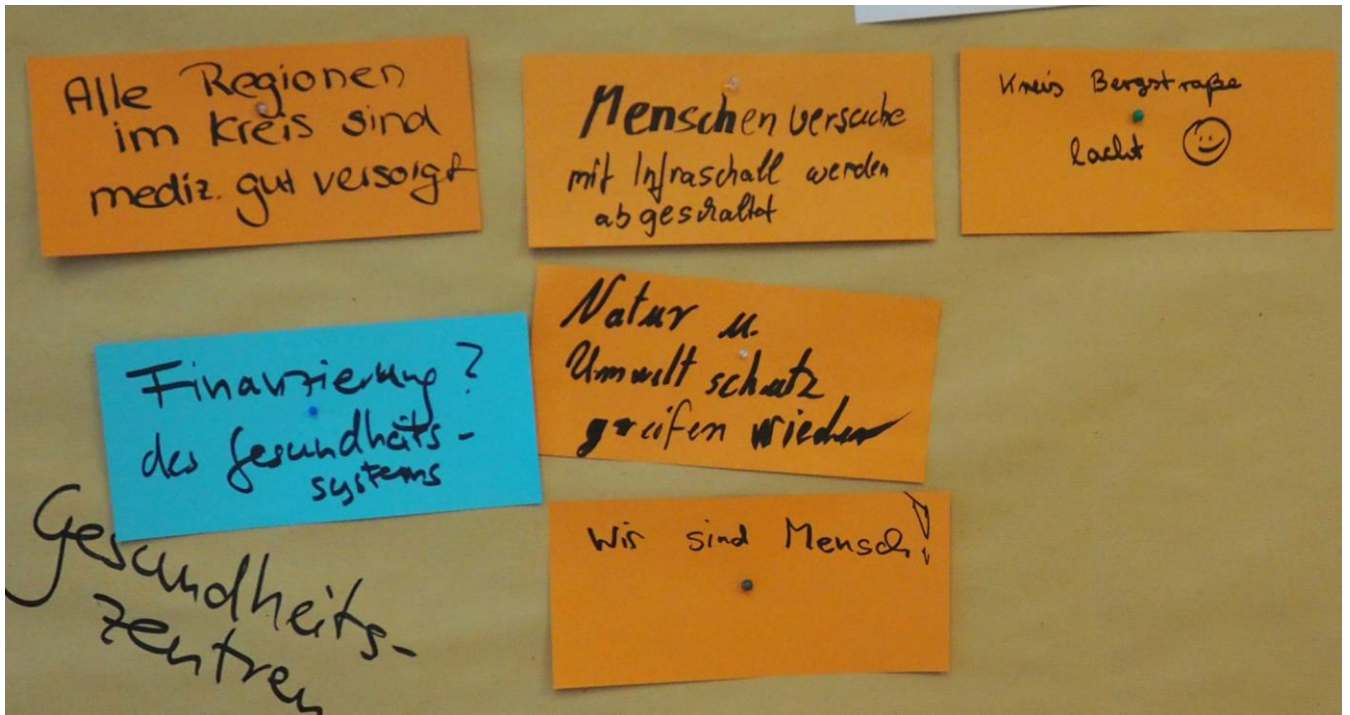 Alle Regionen
im Kreis sind
mediz. gut versorgt
Menschenversuche
mit Infraschall werden
abgeschaltet
Kreis Bergstraße
lacht
Finanzierung?
des Gesundheits-
systems
Natur u.
Umweltschutz
greifen wieder
Wir sind Mensch!
Gesundheits-
zentren